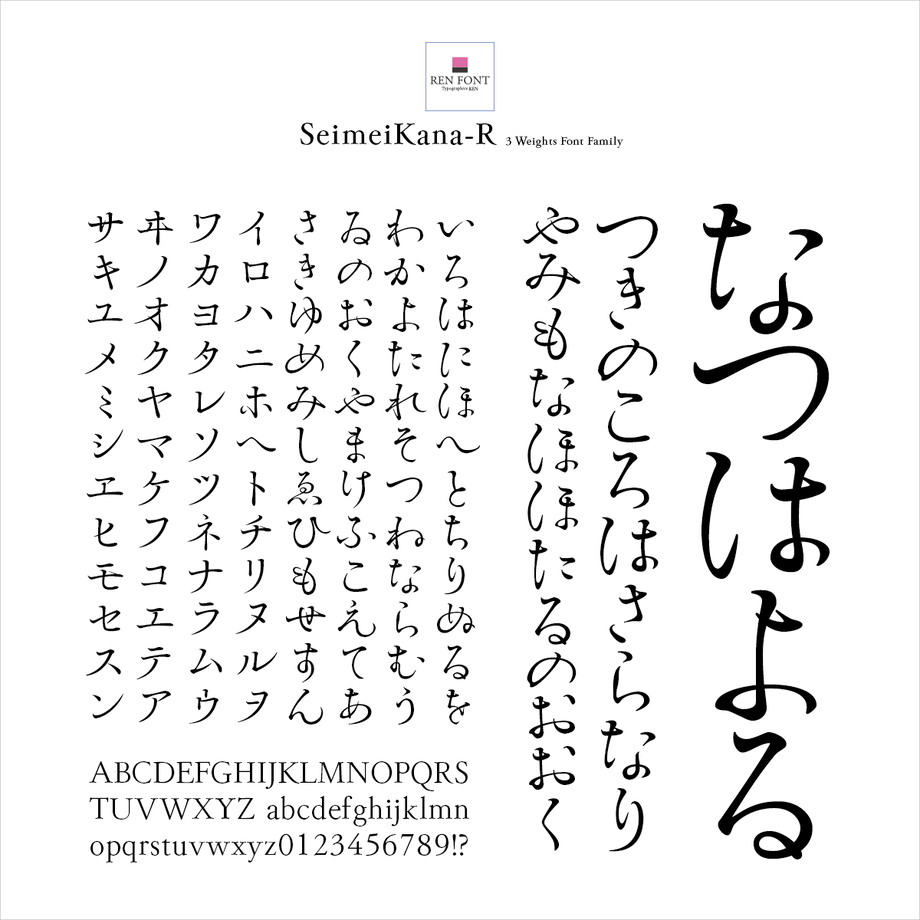 REN FONT
Typographics REN
SeimeiKana-R 3 Weights Font Family
なつはよる
つきのころはさらなり
やみもなほほたるのおおく
いろはにほへとちりぬるを
わかよたれそつねならむう
ゐのおくやまけふこえてあ
さきゆめみしゑひもせすん
イロハニホヘトチリヌルヲ
ワカヨタレソツネナラムウ
ヰノオクヤマケフコエテア
サキユメミシヱヒモセスン
ABCDEFGHIJKLMNOPQRS
TUVWXYZ abcdefghijklmn
opqrstuvwxyz0123456789!?